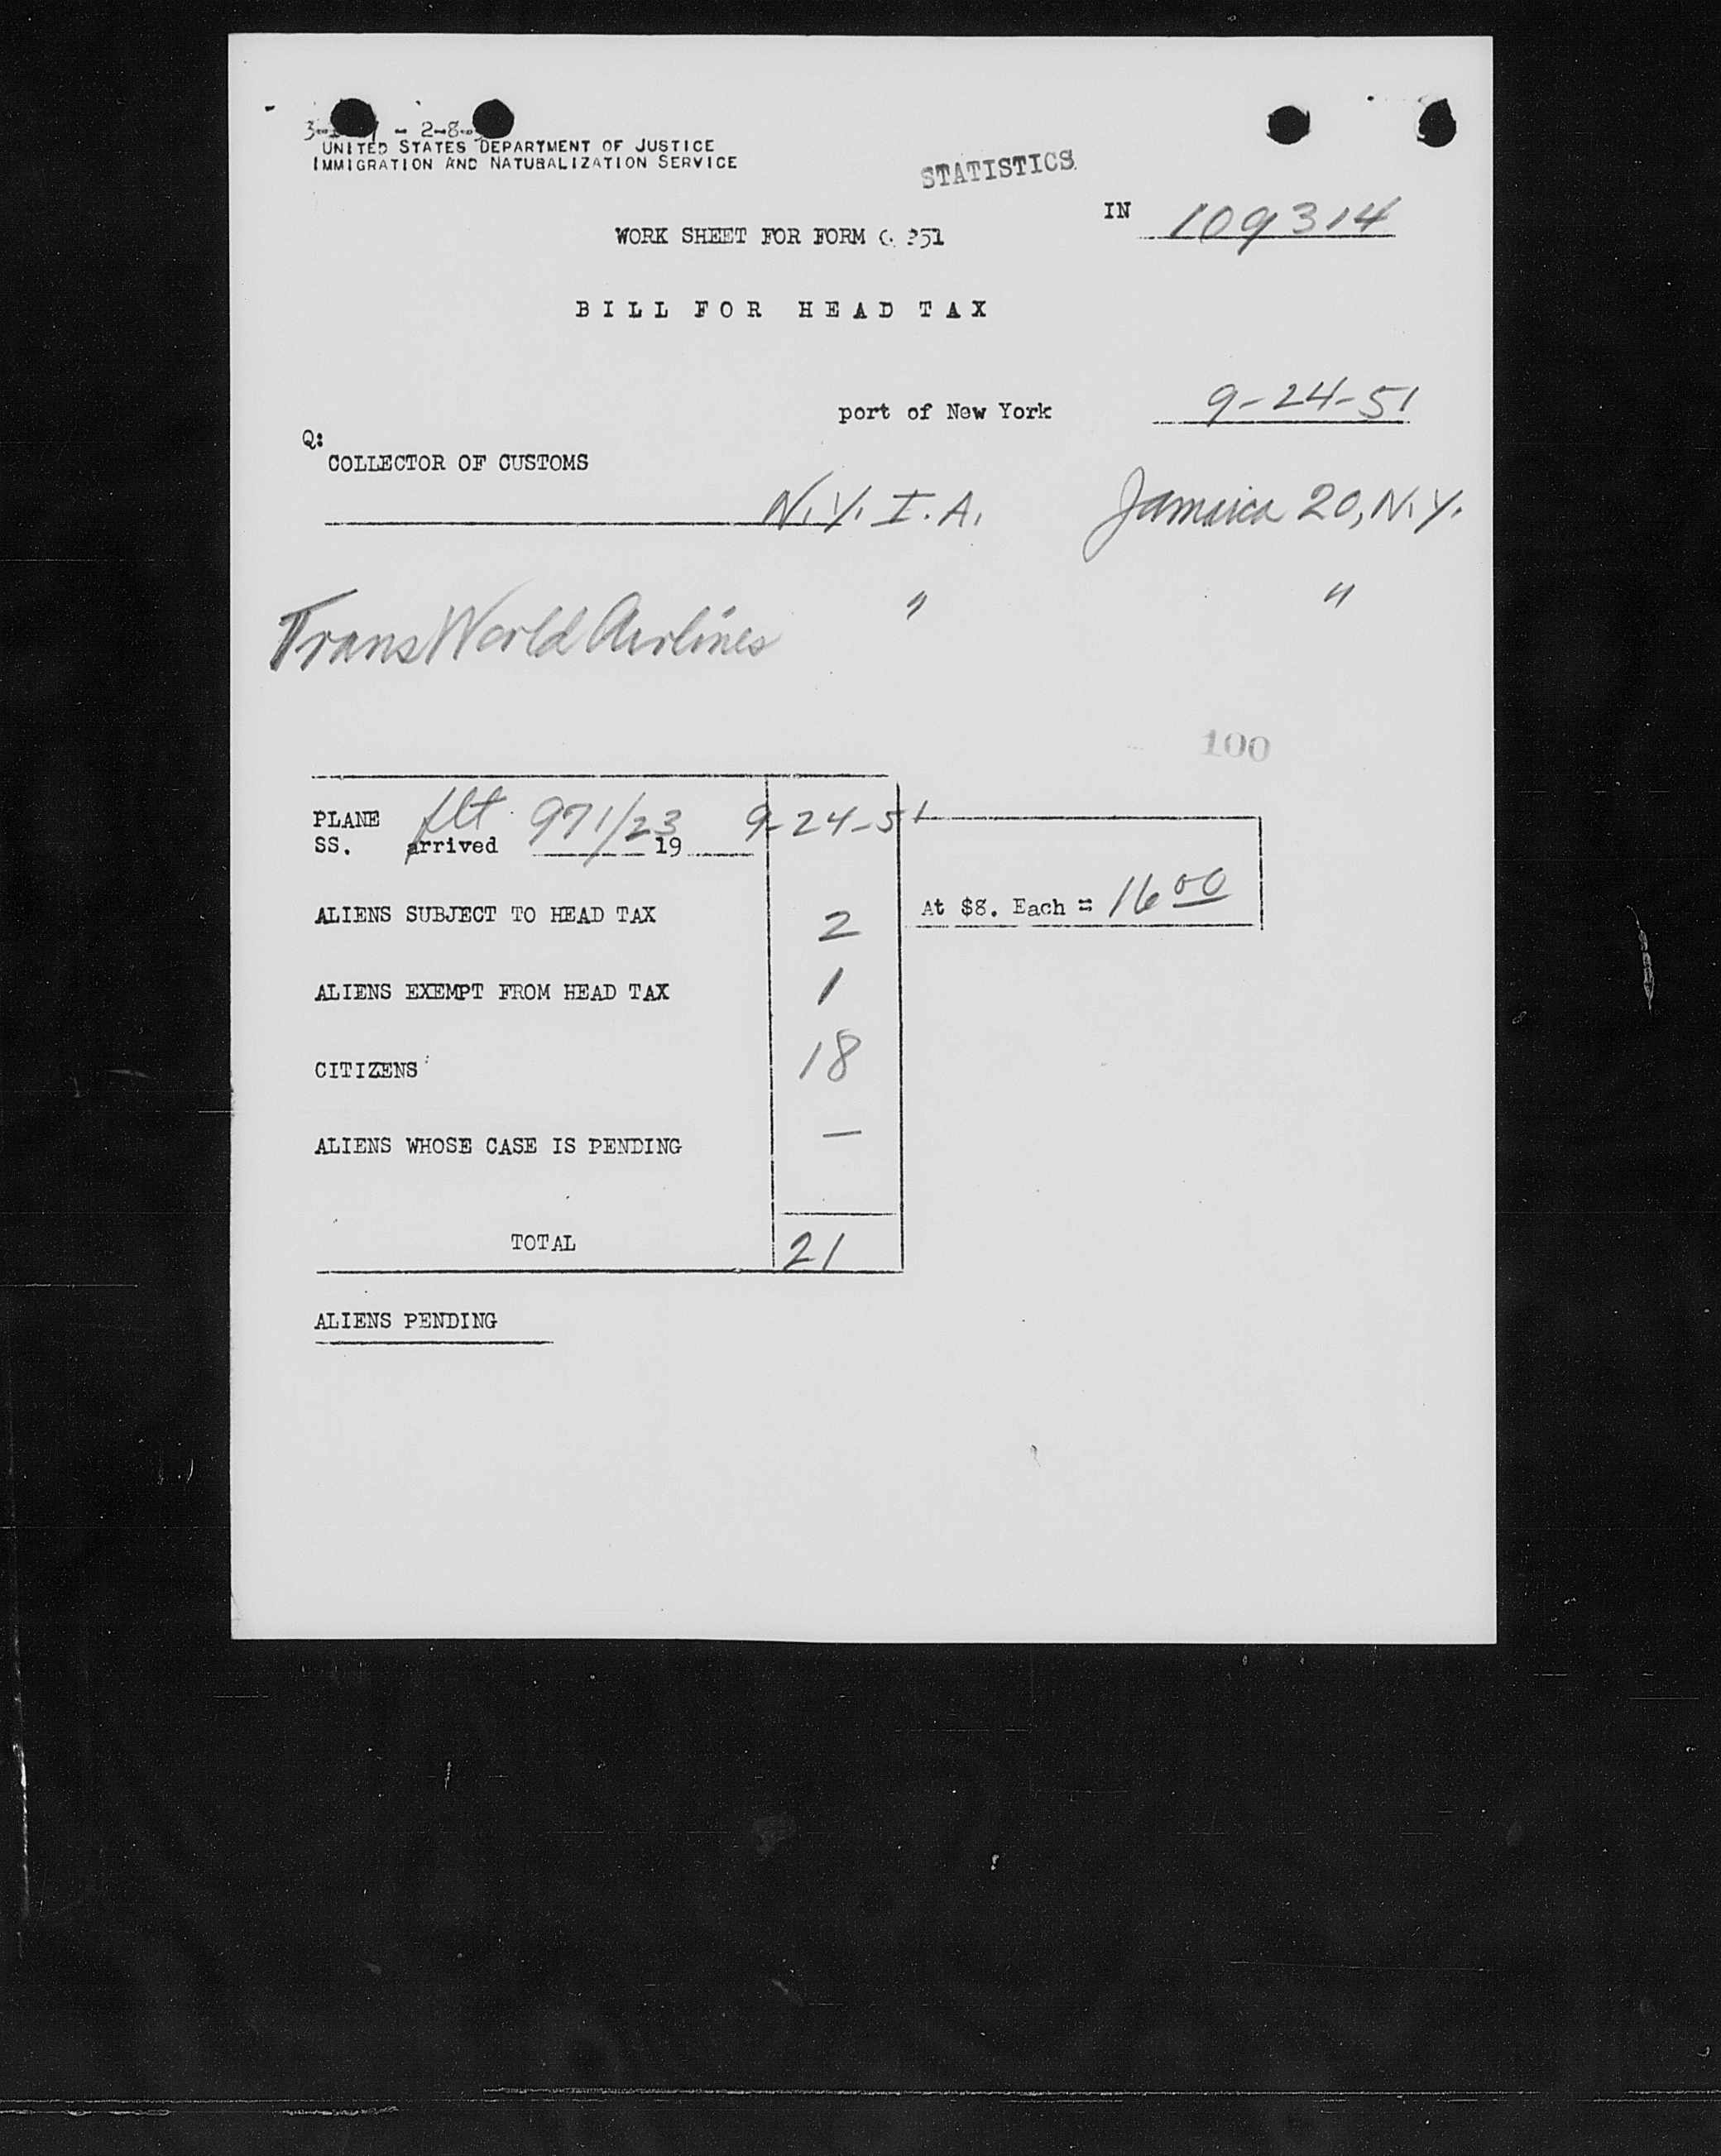 UNITED STATES DEPARTMENT OF JUSTICE
IMMIGRATION AND NATURALIZATION SERVICE
STATISTICS
IN 109314
WORK SHEET FOR FORM
BILL FOR HEAD TAX
port of New York 9-24-51
Q:
COLLECTOR OF CUSTOMS
N.Y. I.A. Jamaica 20, N.Y.
Trans World Airlines " "
100
PLANE flt 971/23 9-24-51
SS. arrived 19
ALIENS SUBJECT TO HEAD TAX 2 At $8. Each = 16 00
ALIENS EXEMPT FROM HEAD TAX 1
CITIZENS 18
ALIENS WHOSE CASE IS PENDING —
TOTAL 21
ALIENS PENDING